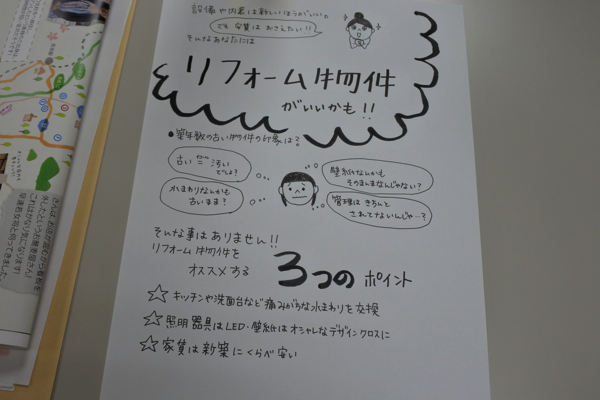 設備や内装は新しいほうがいい。
でも 家賃は おさえたい!!
そんなあなたには
リフォーム物件
がいいかも!!
●築年数の古い物件の印象は?
古い=汚い
でしょ?
水まわりなんかも
古いまま?
壁紙なんかも
そのまんまなんじゃない?
管理はきちんと
されてないんじゃ…?
そんな事はありません!!
リフォーム物件を
オススメする
3つの ポイント
☆キッチンや洗面台など痛みがちな水まわりを交換
☆照明器具はLED・壁紙はオシャレなデザインクロスに
☆家賃は新築にくらべ安い